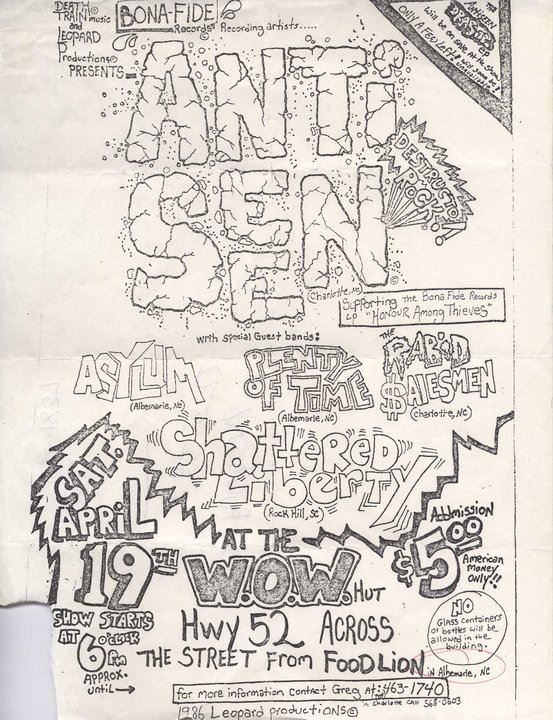 DEATH TRAIN music
and
LEOPARD
Productions©
PRESENTS
BONA-FIDE
Records® Recording artists.....
THE ANTISEEN DISASTER EP
will be on sale at the show
ONLY A FEW LEFT!!
ANTi
SEEN
DESTRUCTO
ROCK!!
(Charlotte, NC)
Supporting the Bona Fide Records
LP "HONOUR Among Thieves"
with special Guest bands:
ASYLUM
(Albemarle, NC)
PLENTY
OF TIME
(Albemarle, NC)
THE RABiD
$ALESMEN
(Charlotte, NC)
Shattered
LiberTy
(Rock Hill, SC)
SAT.
APRiL
19TH
SHOW STARTS
AT 6 O'CLOCK
Pm
APPROX.
until →
AT THE
W.O.W. HUT
Admission
$5.00
American
money
only!!
Hwy 52 ACROSS
THE STREET From FOOD LION
in Albemarle, NC
NO
Glass containers
or bottles will be
allowed in the
building.
for more information contact Greg At: 463-1740
in Charlotte call 568-0603
1986 Leopard productions©